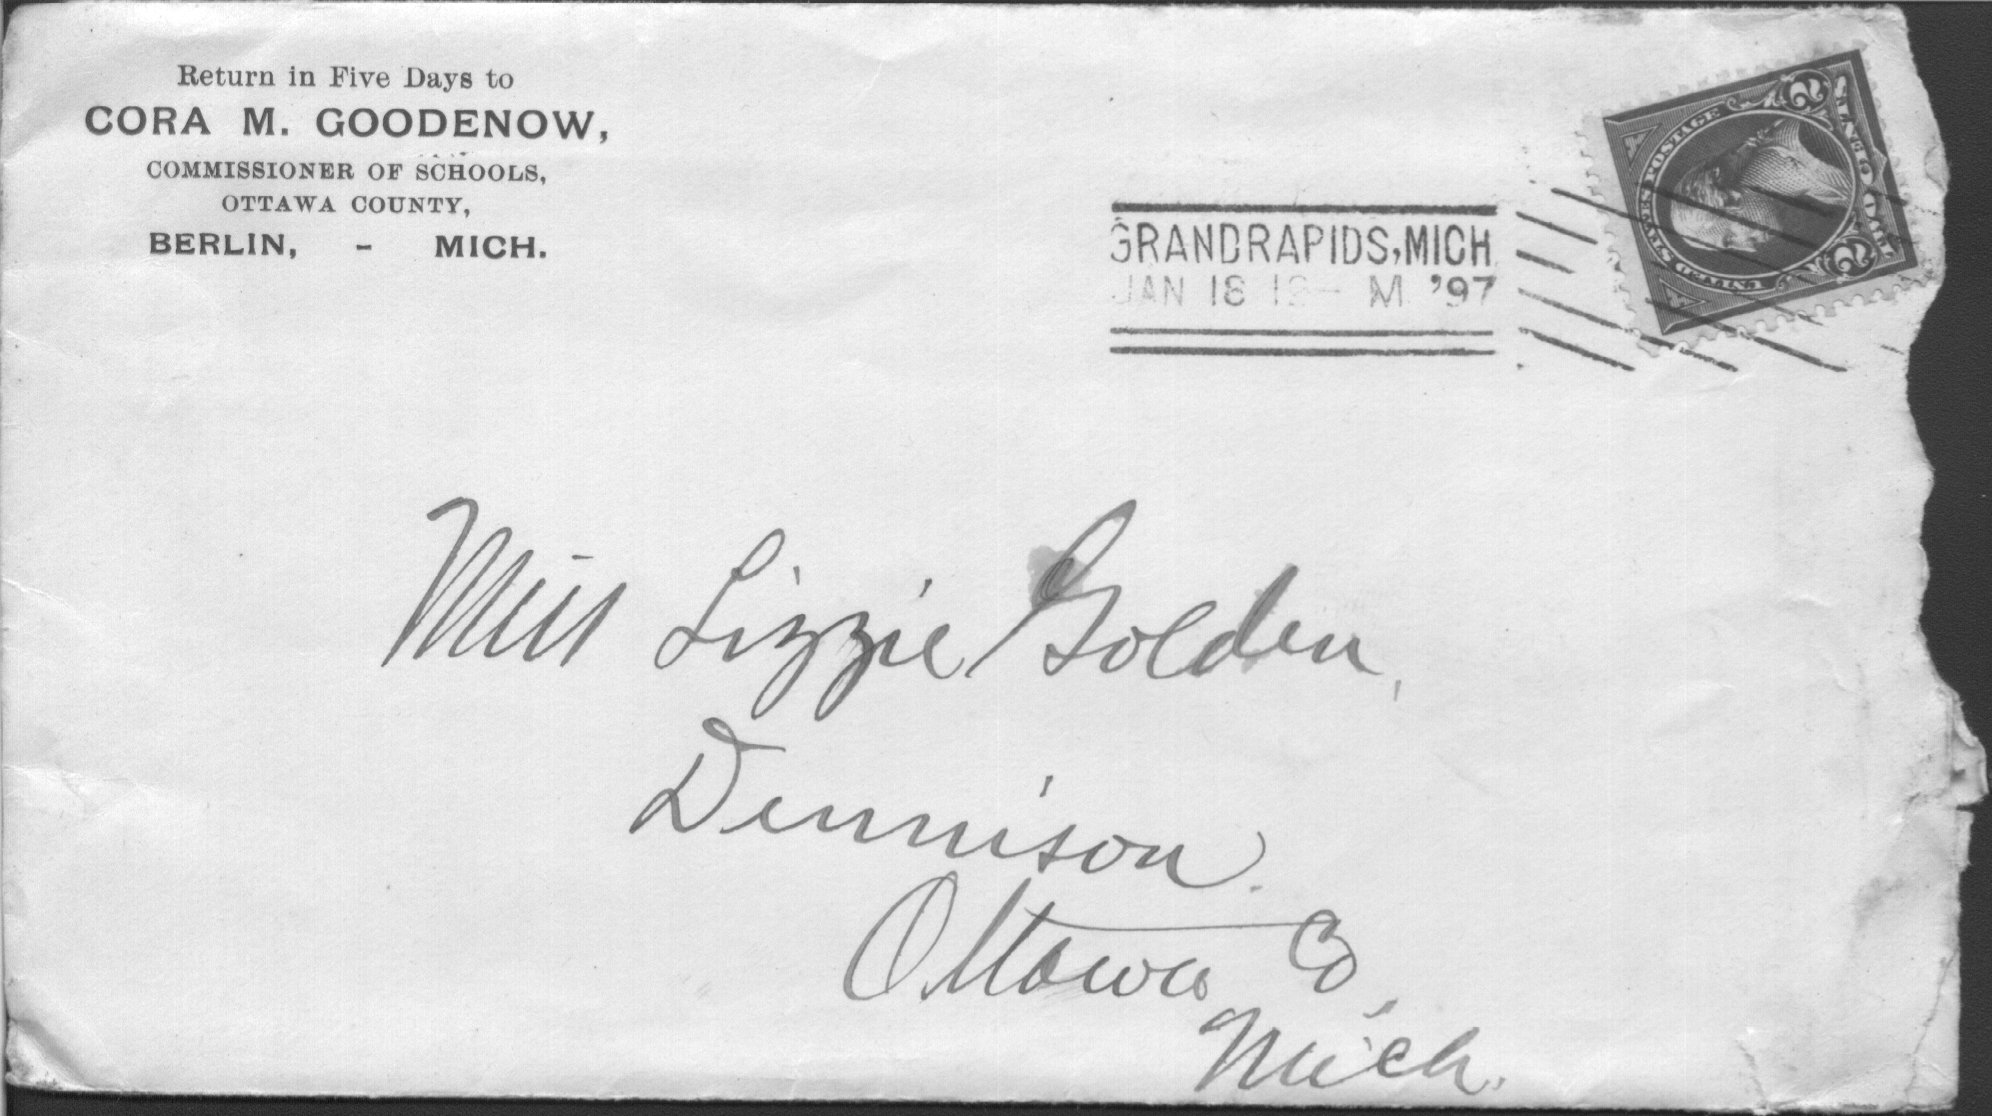 Return in Five Days to
CORA M. GOODENOW,
COMMISSIONER OF SCHOOLS,
OTTAWA COUNTY,
BERLIN, - MICH.
GRANDRAPIDS, MICH
JAN 18 12- M '97
UNITED STATES POSTAGE
2 TWO CENTS 2
Miss Lizzie Golden,
Dennison.
Ottawa Co,
Mich.